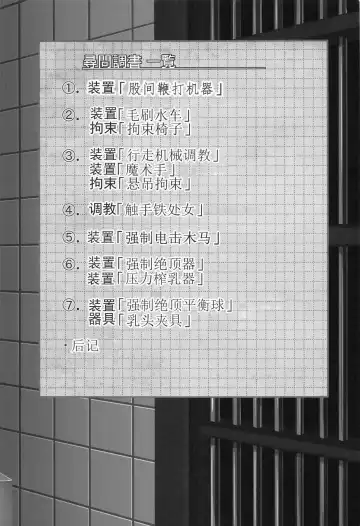 尋問調書 一覧
①．装置「股间鞭打机器」
②．装置「毛刷水车」
拘束「拘束椅子」
③．装置「行走机械调教」
装置「魔术手」
拘束「悬吊拘束」
④．调教「触手铁处女」
⑤．装置「强制电击木马」
⑥．装置「强制绝顶器」
装置「压力榨乳器」
⑦．装置「强制绝顶平衡球」
器具「乳头夹具」
·后记